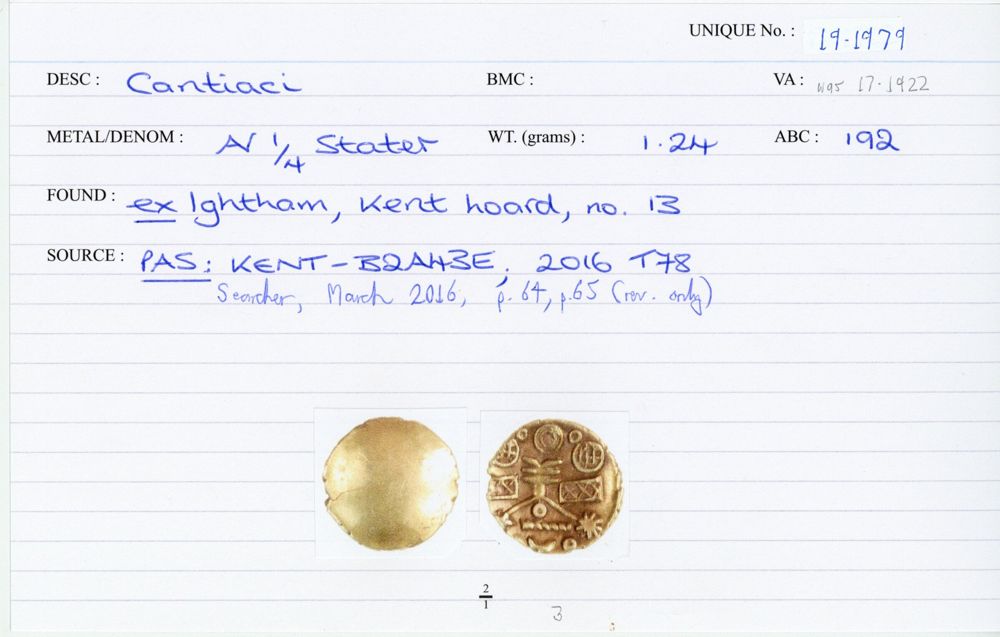 UNIQUE No. : 19-1979
DESC : Cantiaci BMC : VA : was 17-1922
METAL/DENOM : AV 1/4 Stater WT. (grams) : 1.24 ABC : 192
FOUND : ex Ightham, Kent hoard, no. 13
SOURCE : PAS: KENT-B2A43E, 2016 T78
Searcher, March 2016, p. 64, p.65 (rev. only)
2
1
3